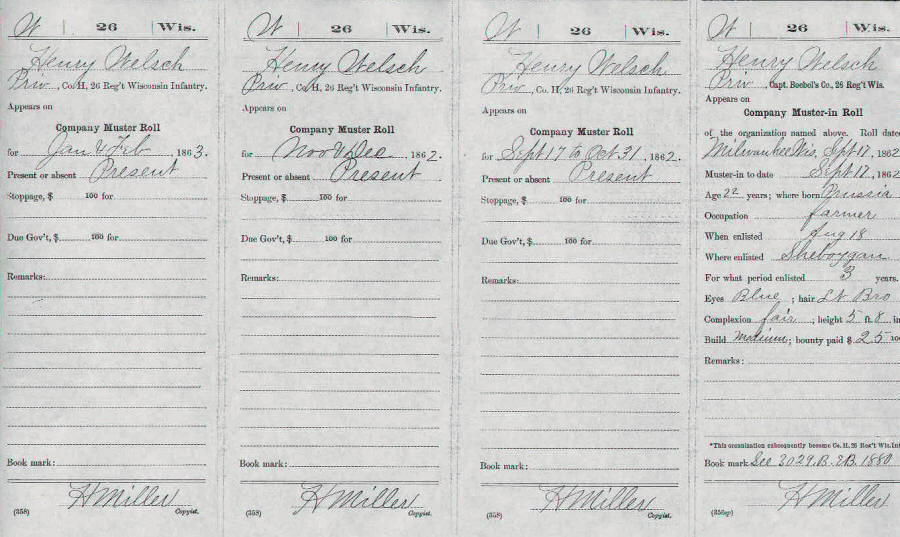 W | 26 | Wis.
Henry Welsch
Priv, Co. H, 26 Reg't Wisconsin Infantry.
Appears on
Company Muster Roll
for Jan & Feb, 1863.
Present or absent Present
Stoppage, $ 100 for
Due Gov't, $ 100 for
Remarks:
Book mark:
H Miller
(358) Copyist.
W | 26 | Wis.
Henry Welsch
Priv, Co. H, 26 Reg't Wisconsin Infantry.
Appears on
Company Muster Roll
for Nov & Dec, 1862.
Present or absent Present
Stoppage, $ 100 for
Due Gov't, $ 100 for
Remarks:
Book mark:
H Miller
(358) Copyist.
W | 26 | Wis.
Henry Welsch
Priv, Co. H, 26 Reg't Wisconsin Infantry.
Appears on
Company Muster Roll
for Sept 17 to Oct 31, 1862.
Present or absent Present
Stoppage, $ 100 for
Due Gov't, $ 100 for
Remarks:
Book mark:
H Miller
(358) Copyist.
W | 26 | Wis.
Henry Welsch
Priv, Capt. Boebel's Co., 26 Reg't Wis.
Appears on
Company Muster-in Roll
of the organization named above. Roll dated
Milwaukee Wis, Spt 17, 1862
Muster-in to date Sept 17, 1862
Age 22 years; where born Prussia
Occupation farmer
When enlisted Aug 18
Where enlisted Sheboygan
For what period enlisted 3 years.
Eyes Blue; hair Lt Bro
Complexion fair; height 5 ft. 8 in
Build Medium; bounty paid $ 25 100
Remarks:
*This organization subsequently became Co. H, 26 Reg't Wis. Inf
Book mark See 3029. B. EB. 1880
H Miller
(356sp) Copyist.